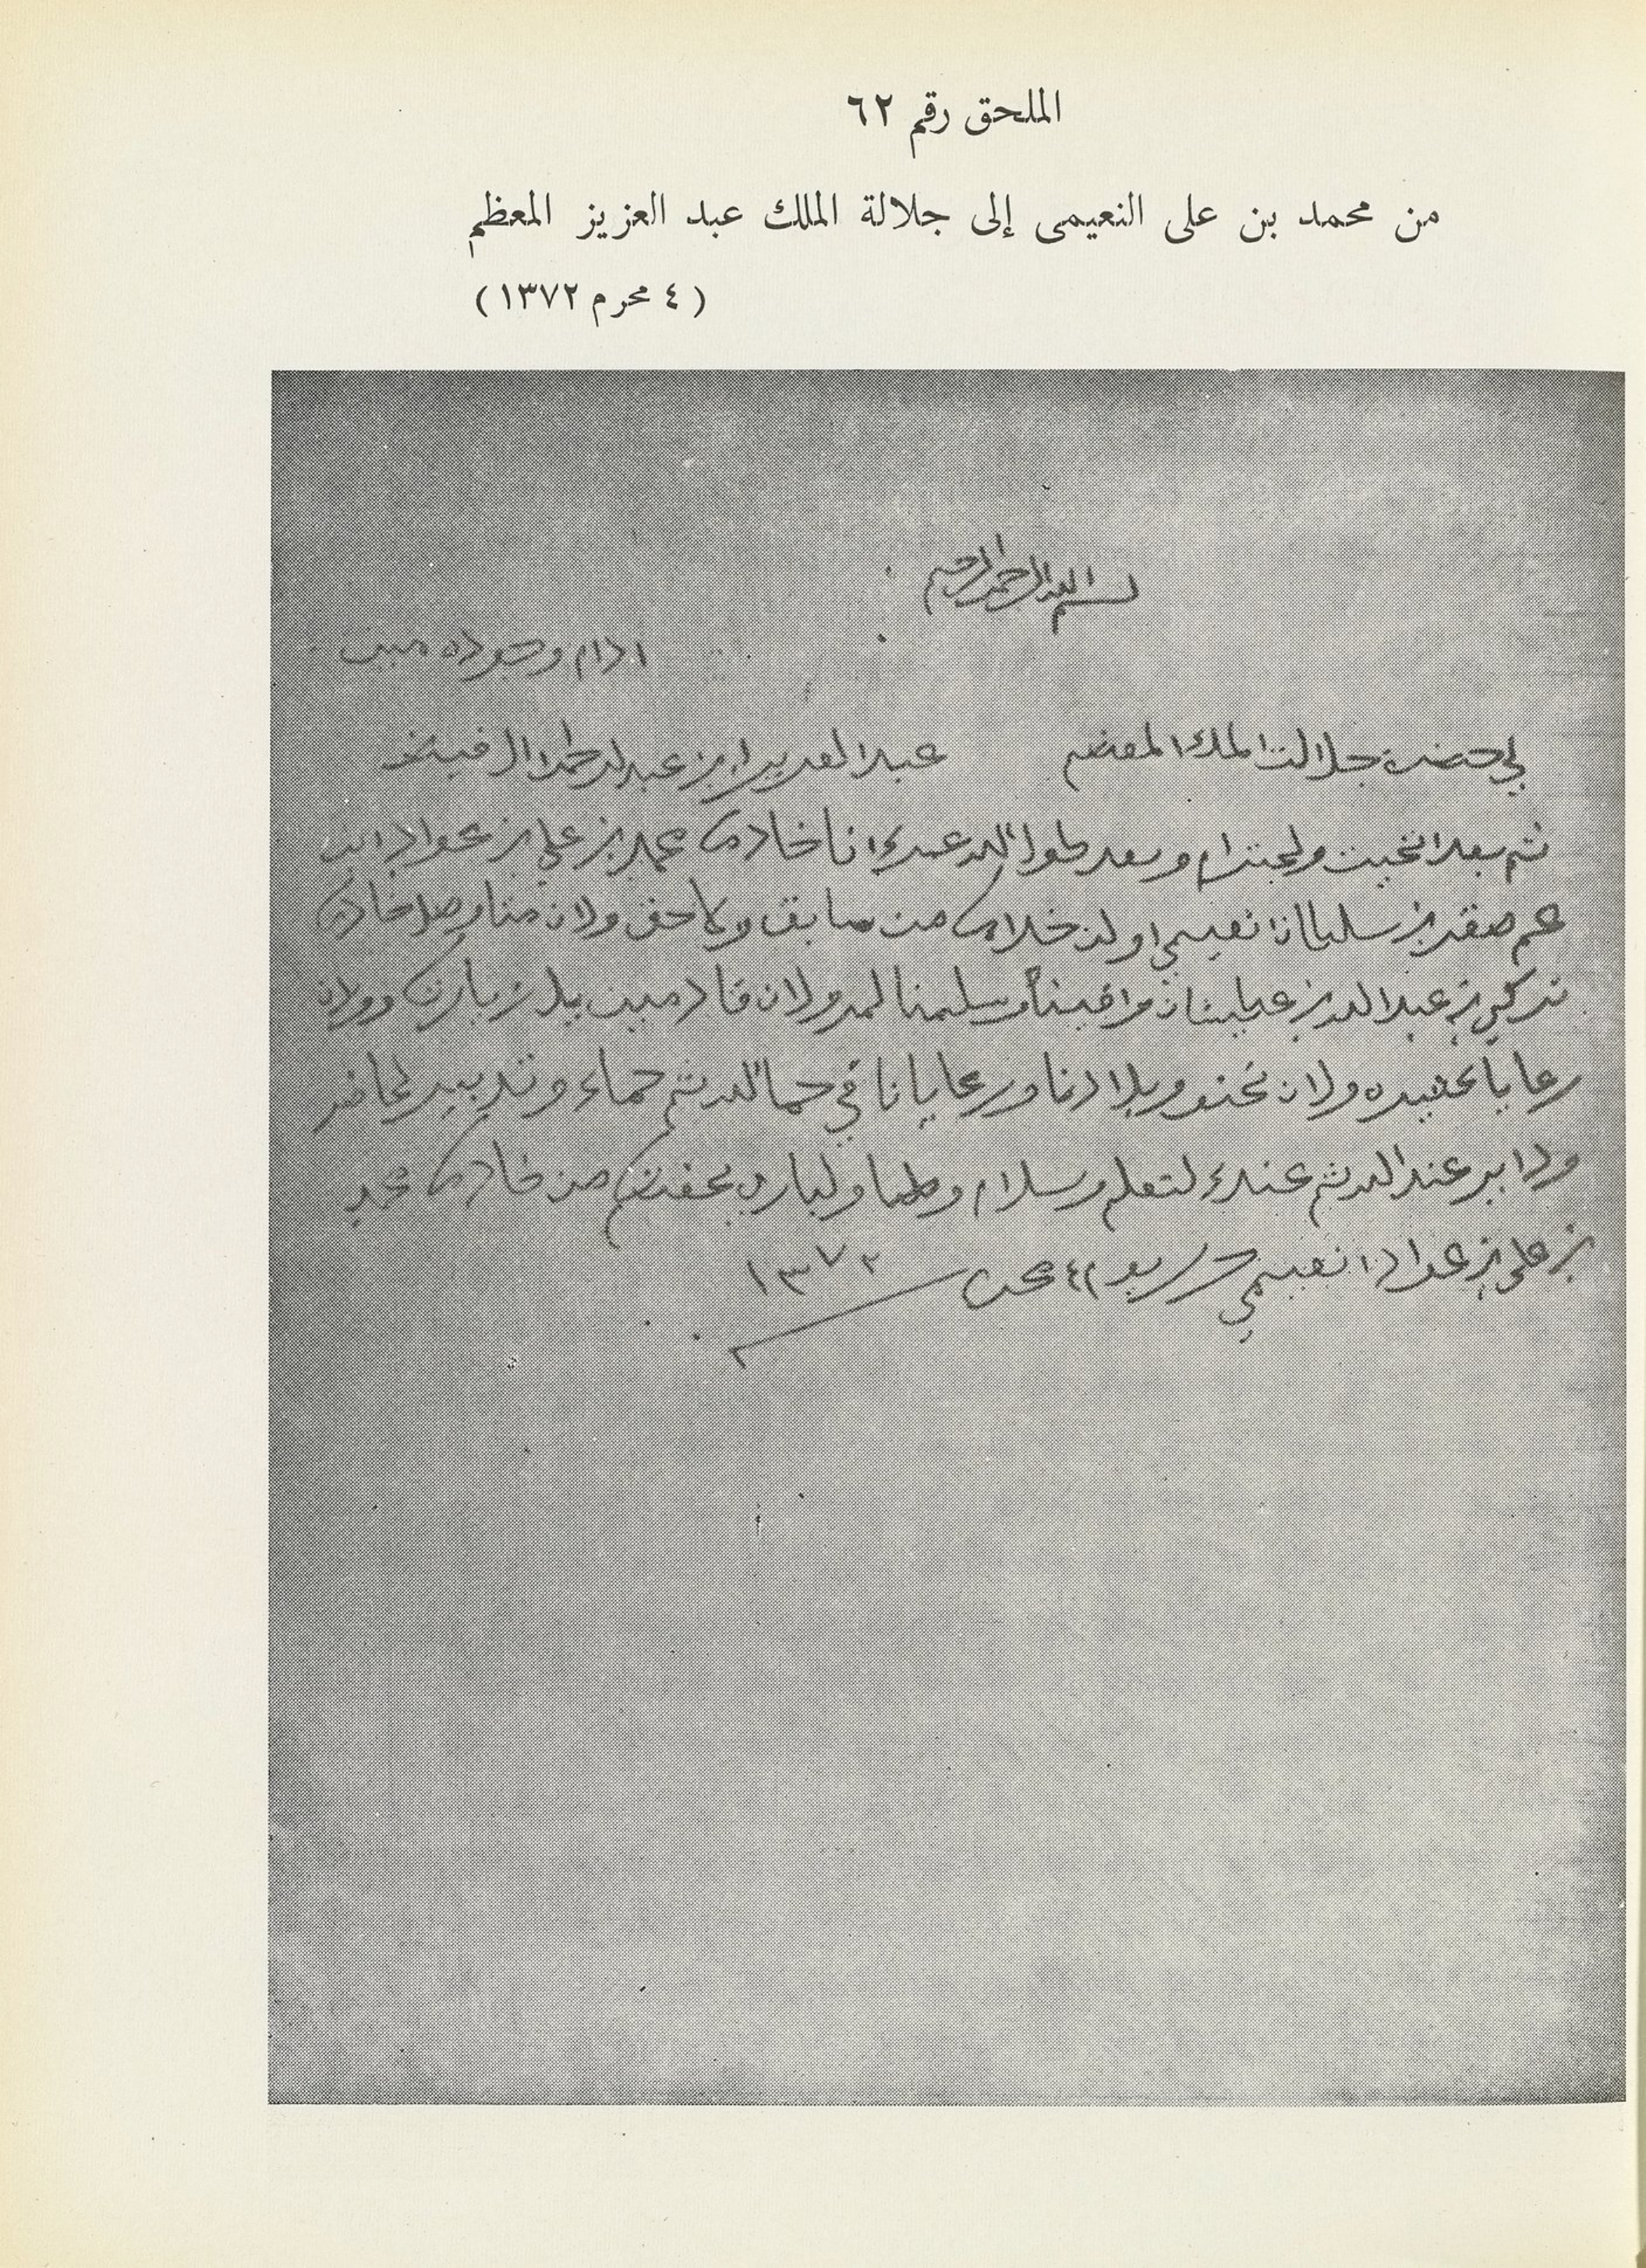 الملحق رقم ٦٢
من محمد بن على النعيمى إلى جلالة الملك عبد العزيز المعظم
( ٤ محرم ١٣٧٢ )
بسم الله الرحمن الرحيم
ادام وجوده مين
لي حضرت جلالت الملك المعضم عبد العزيز ابن عبد لرحمن ال فيصل
ثم بعد التحيت ولحتدام وبعد طول الله عمرك انا خادمك محمد بن علي بن عواد ابن
عم صقر بن سلطان نعيمي او لن خدامك من سابق ولاحق ولان منا وصل خادمك
تركي بن عبد الله بن عطيشان وافينا وسلمنا لمر ولان قادمين بل زيارت
رعايا ولان نحنو وبلادنا ورعايانا في حما الله ثم حماك وتدبير لحاضر
عند الله ثم عندك لتعلم وسلام ولباري يحفضكم من خادمك محمد
بن علي بن عواد نعيمي حرر يوم ٤ محرم ١٣٧٢